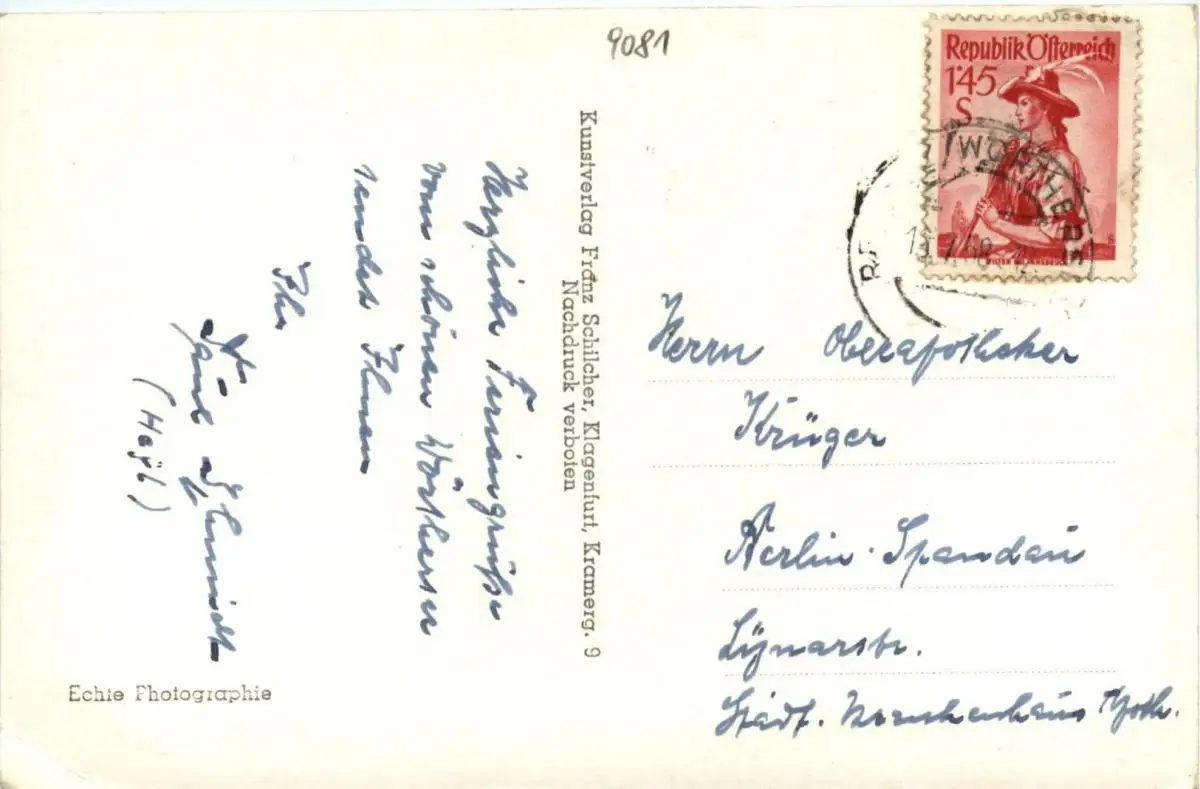 9081
Republik Österreich
1'45
S
WÖRTHERSE
Herzliche Feriengrüße
vom schönen Wörthersee
sendet Ihnen
Ihr
Paul Schmidt
Kunstverlag Franz Schilcher, Klagenfurt, Kramerg. 9
Nachdruck verboten
Herrn Oberapotheker
Krüger
Berlin-Spandau
Lynarstr.
Städt. Krankenhaus Apoth.
Echte Photographie